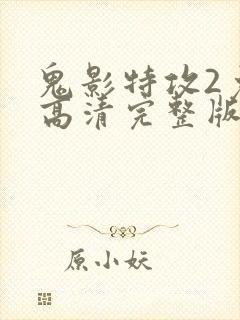 鬼影特攻2
高清完整版
原小妖